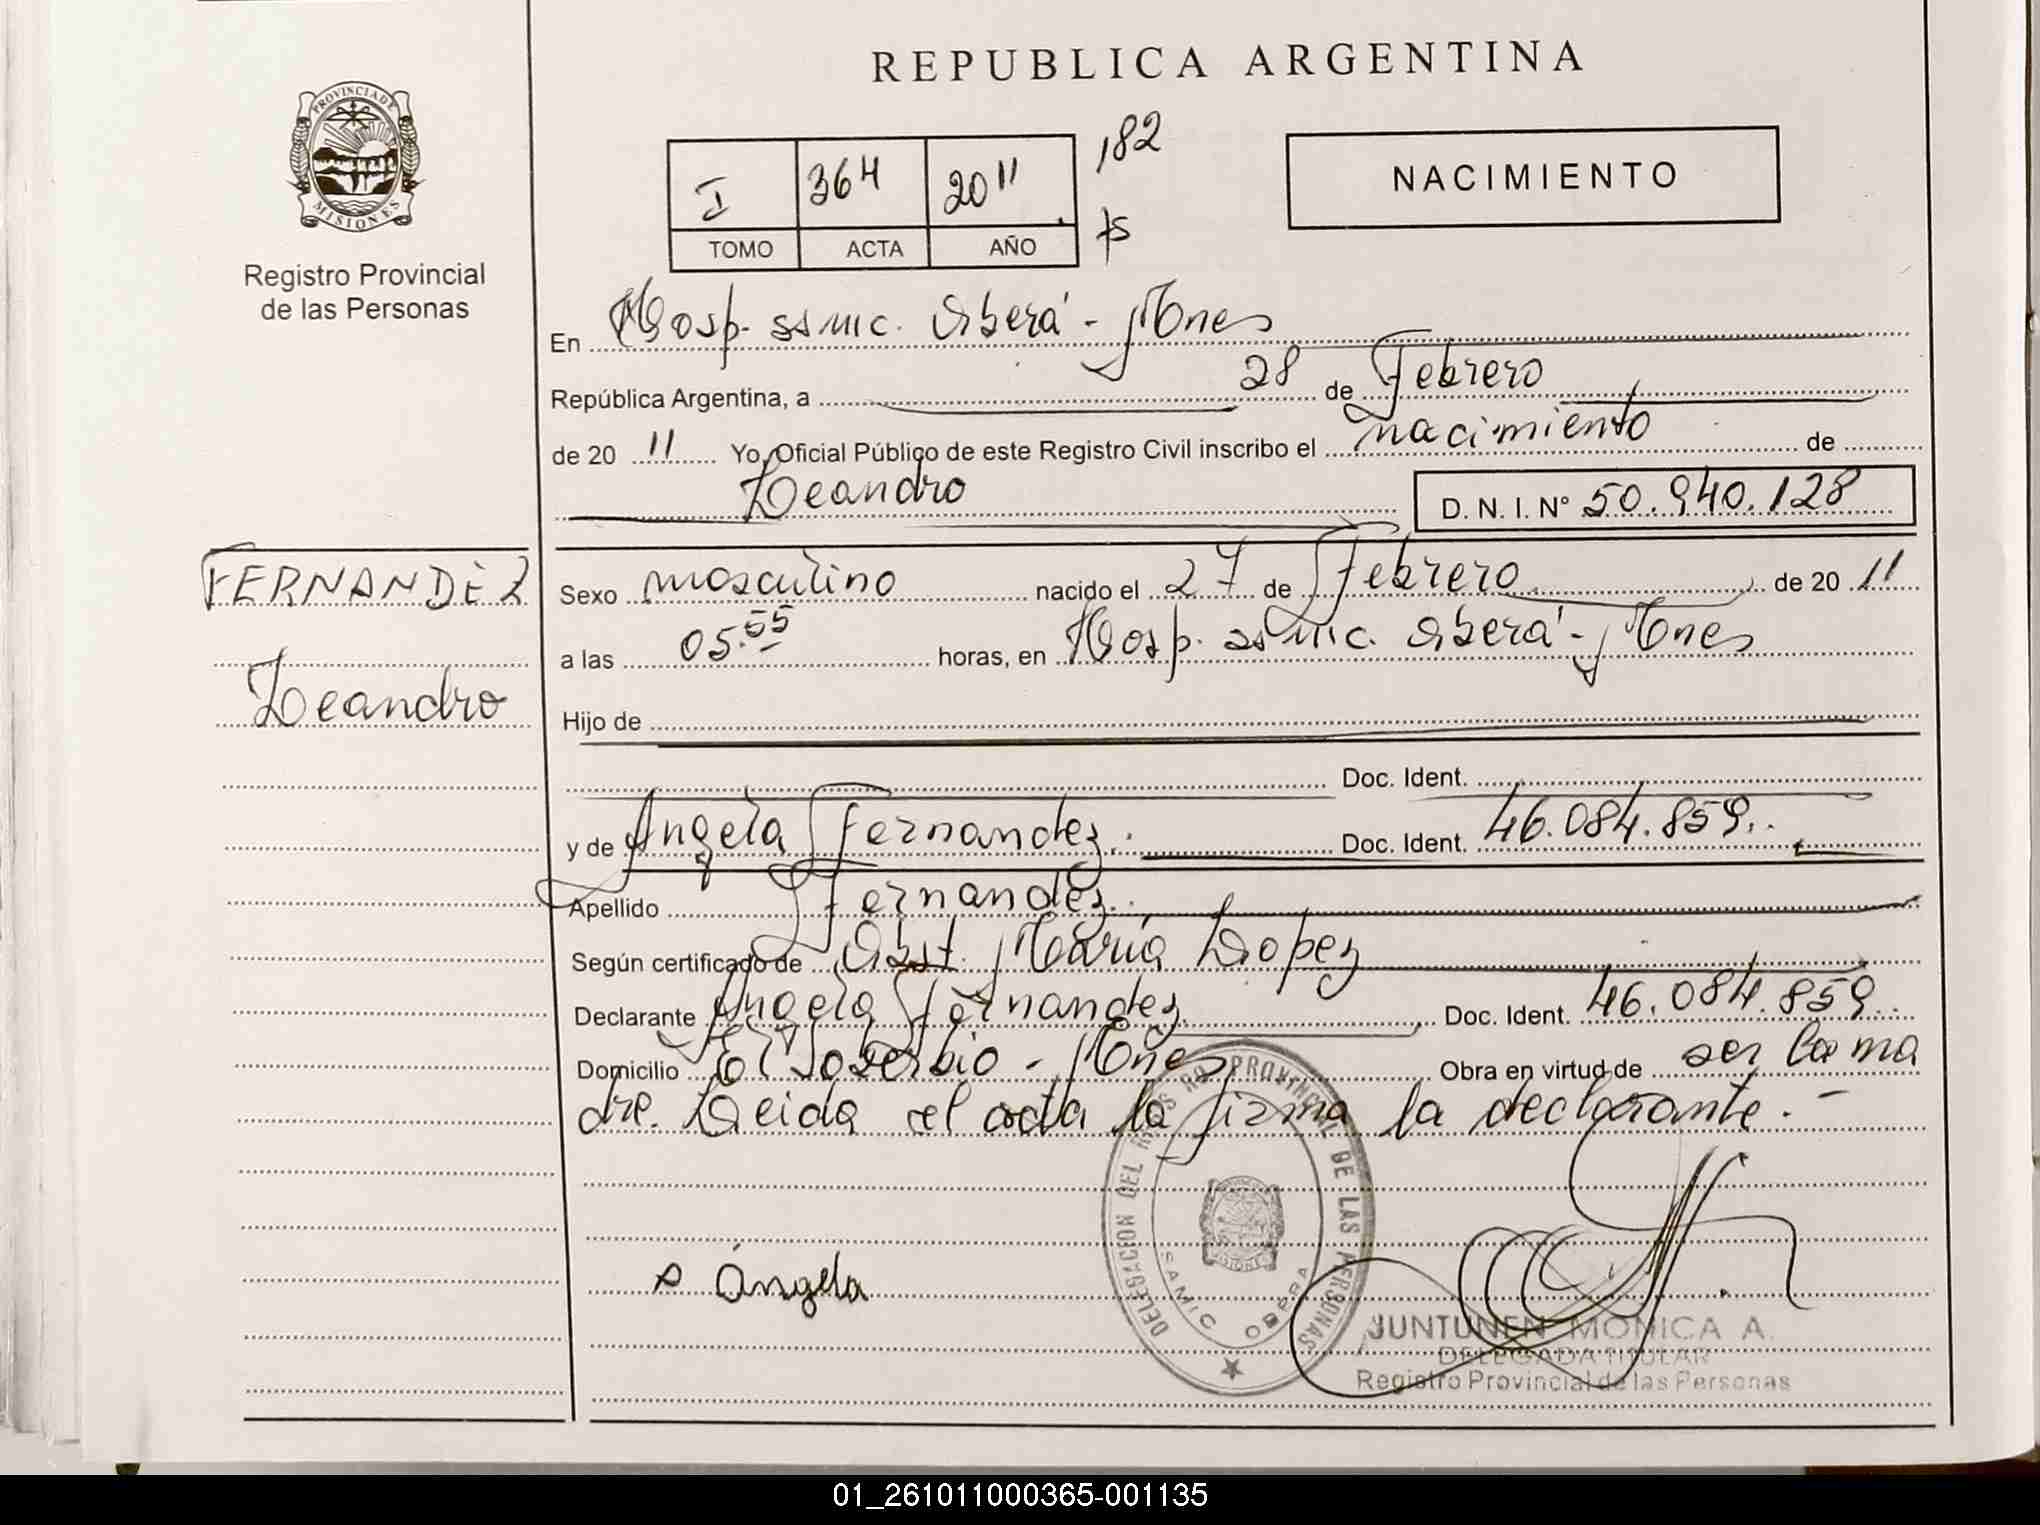 REPUBLICA ARGENTINA
PROVINCIA DE
MISIONES
Registro Provincial
de las Personas
I 364 2011 182
TOMO ACTA AÑO fs
NACIMIENTO
En Hosp. ssmic. Oberá - Mnes
República Argentina, a 28 de Febrero
de 20 11 Yo, Oficial Público de este Registro Civil inscribo el nacimiento de
Leandro D. N. I. Nº 50.940.128
FERNANDEZ
Leandro
Sexo masculino nacido el 27 de Febrero de 20 11
a las 05.55 horas, en Hosp. ssmic. Oberá - Mnes
Hijo de
Doc. Ident.
y de Angela Fernandez. Doc. Ident. 46.084.859..
Apellido Fernandez..
Según certificado de Obst. María Lopez
Declarante Angela Fernandez Doc. Ident. 46.084.859..
Domicilio El Soberbio - Mnes Obra en virtud de ser la ma
dre. Leida el acta la firma la declarante.-
Ángela
DELEGACION DEL REGISTRO PROVINCIAL DE LAS PERSONAS
SAMIC OBERA
MISIONES
JUNTUNEN MONICA A.
DELEGADA TITULAR
Registro Provincial de las Personas
01_261011000365-001135